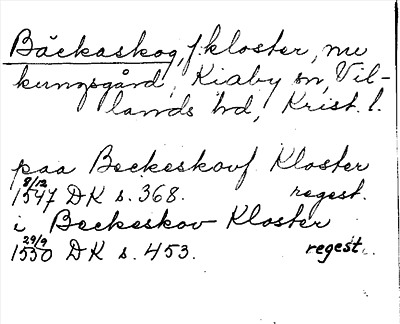 Bäckaskog, f. kloster, nu
kungsgård, Kiaby sn, Vil-
lands hd, Krist. l.
paa Beckeskouf Kloster
8/12
1547 DK s. 368. regest.
i Beckeskov Kloster
29/9
1550 DK s. 453. regest.